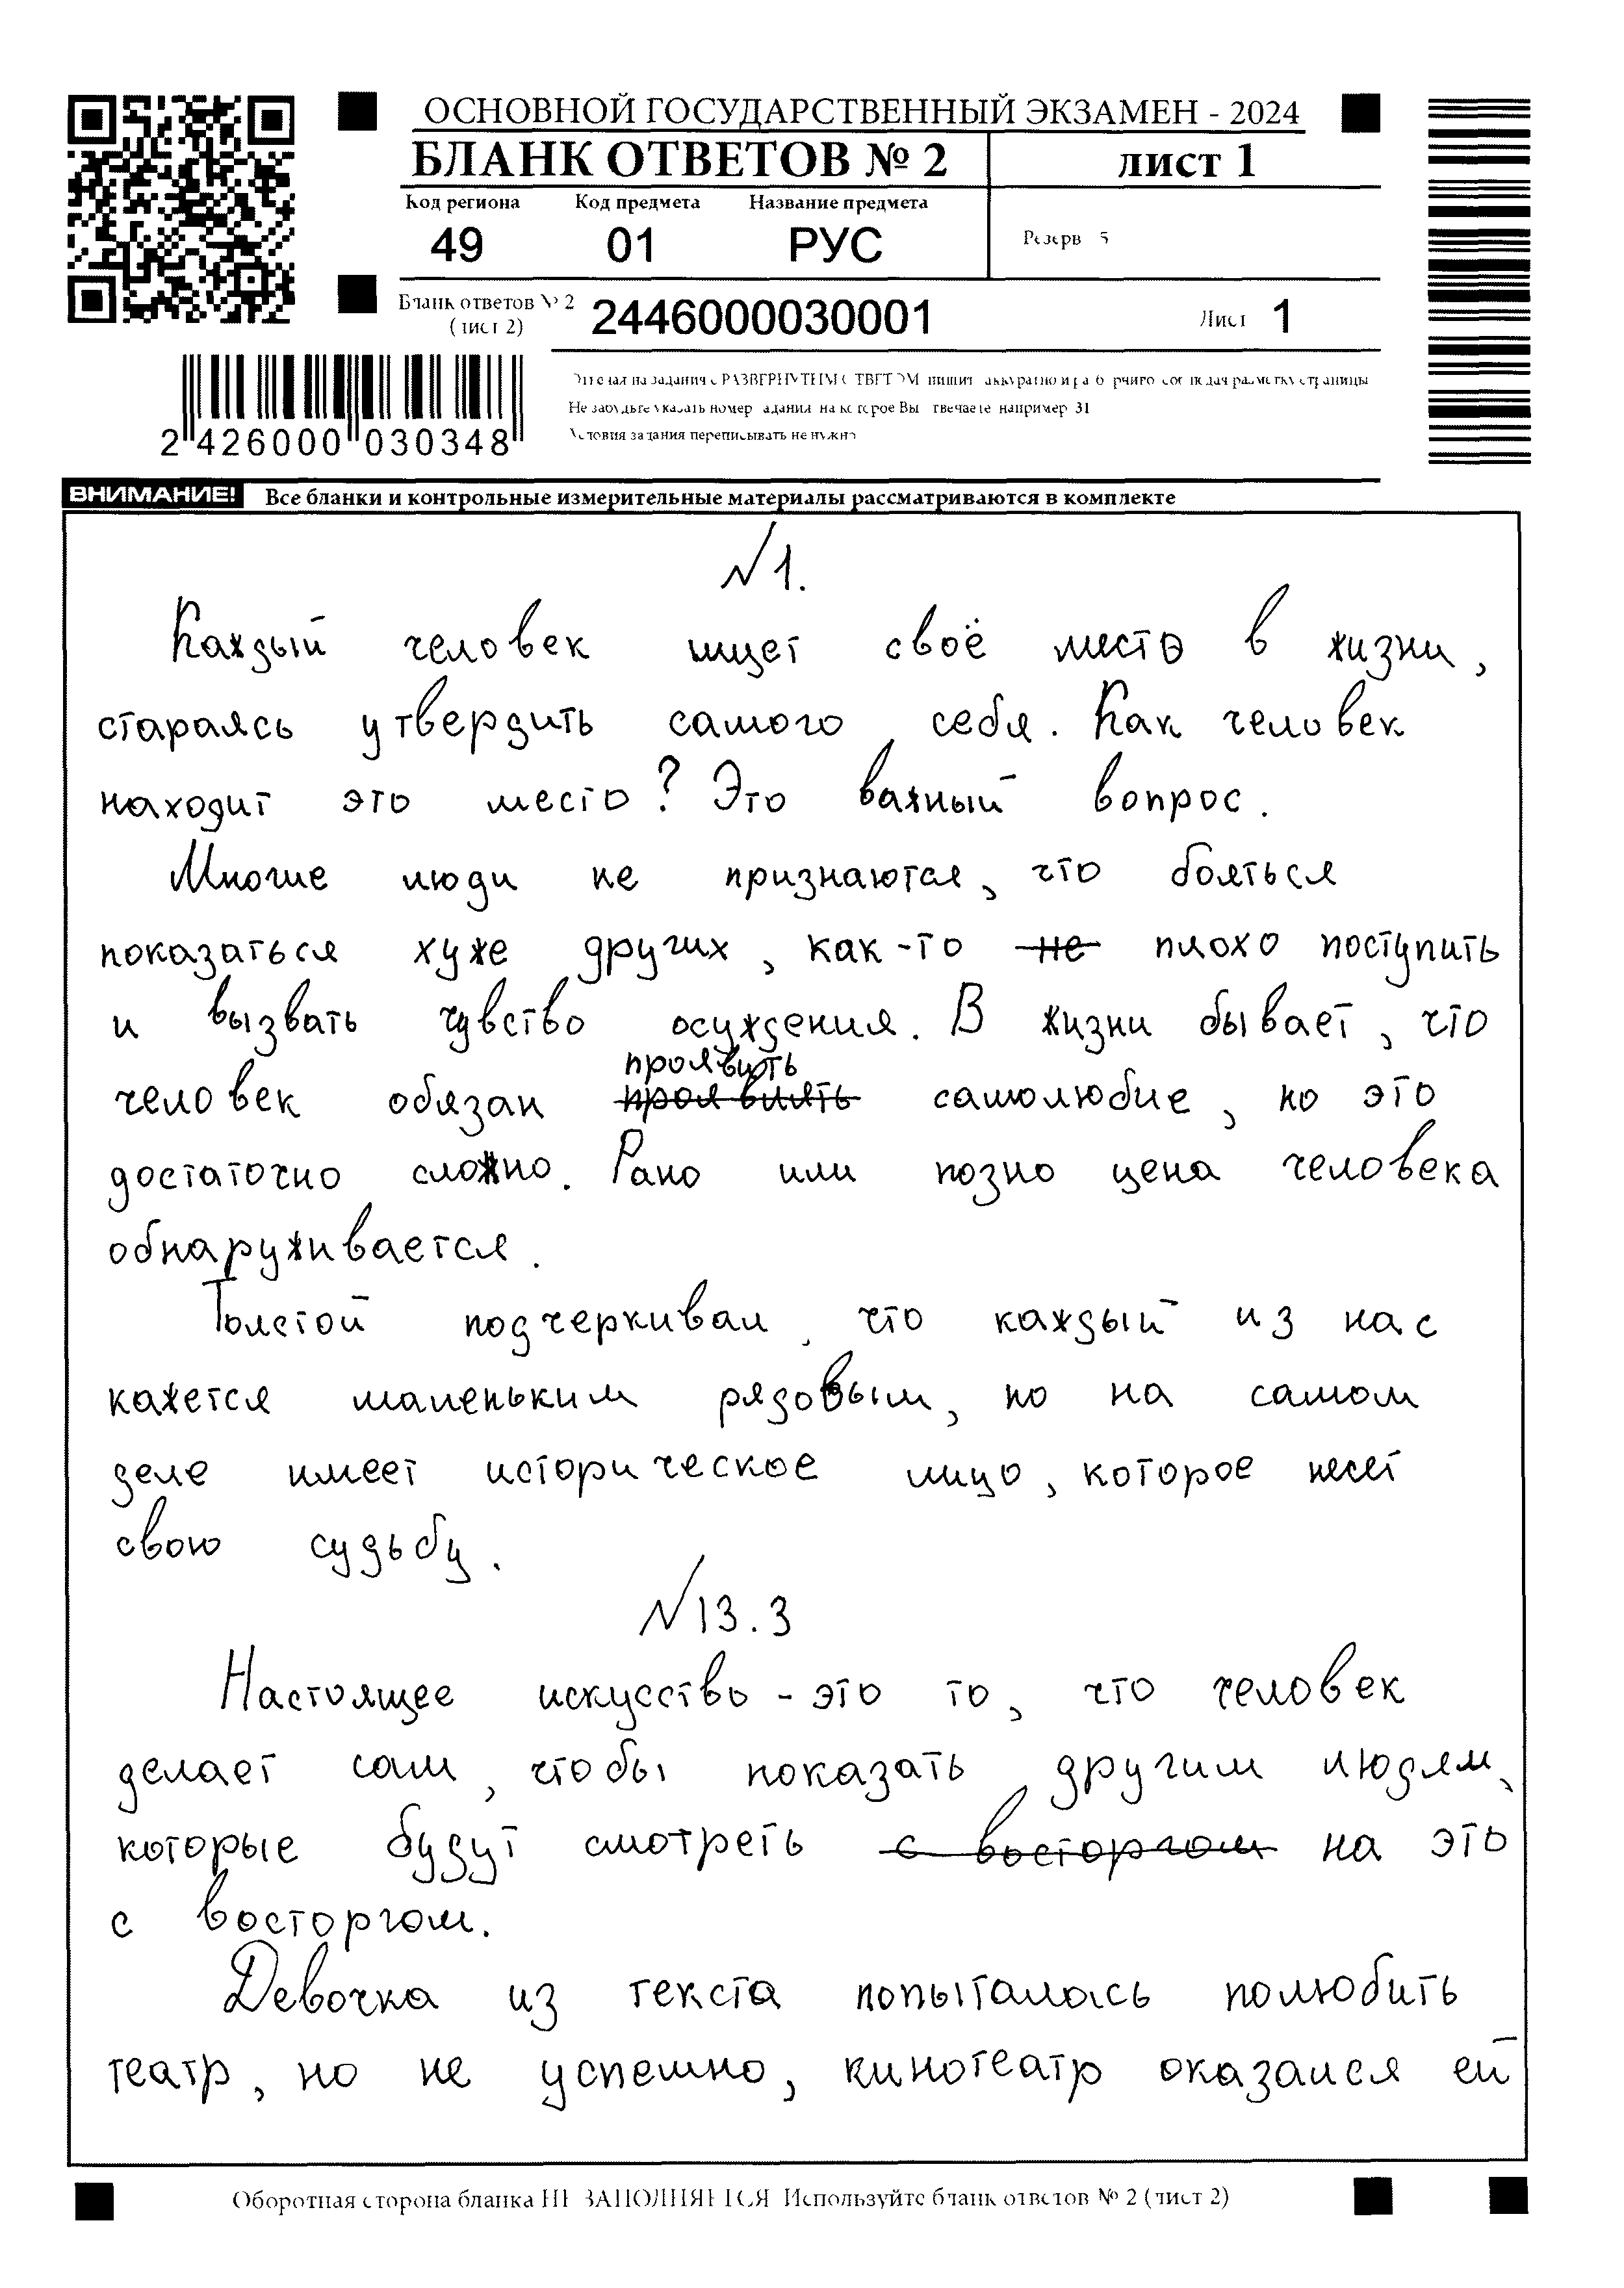 ОСНОВНОЙ ГОСУДАРСТВЕННЫЙ ЭКЗАМЕН - 2024
БЛАНК ОТВЕТОВ № 2 лист 1
Код региона Код предмета Название предмета
49 01 РУС
Резерв 5
Бланк ответов № 2
(лист 2)
2446000030001 Лист 1
2 426000 030348
Не забудьте указать номер задания на которое Вы отвечаете например 31
Условия задания переписывать не нужно
ВНИМАНИЕ! Все бланки и контрольные измерительные материалы рассматриваются в комплекте
№1.
Каждый человек ищет своё место в жизни,
стараясь утвердить самого себя. Как человек
находит это место? Это важный вопрос.
Многие люди не признаются, что бояться
показаться хуже других, как-то не плохо поступить
и вызвать чувство осуждения. В жизни бывает, что
проявить
человек обязан проявлять самолюбие, но это
достаточно сложно. Рано или позно цена человека
обнаруживается.
Толстой подчеркивал, что каждый из нас
кажется маленьким рядовым, но на самом
деле имеет историческое лицо, которое несет
свою судьбу.
№13.3
Настоящее искусство - это то, что человек
делает сам, чтобы показать другим людям,
которые будут смотреть с восторгом на это
с восторгом.
Девочка из текста попыталась полюбить
театр, но не успешно, кинотеатр оказался ей
Оборотная сторона бланка НЕ ЗАПОЛНЯЕТСЯ Используйте бланк ответов № 2 (лист 2)